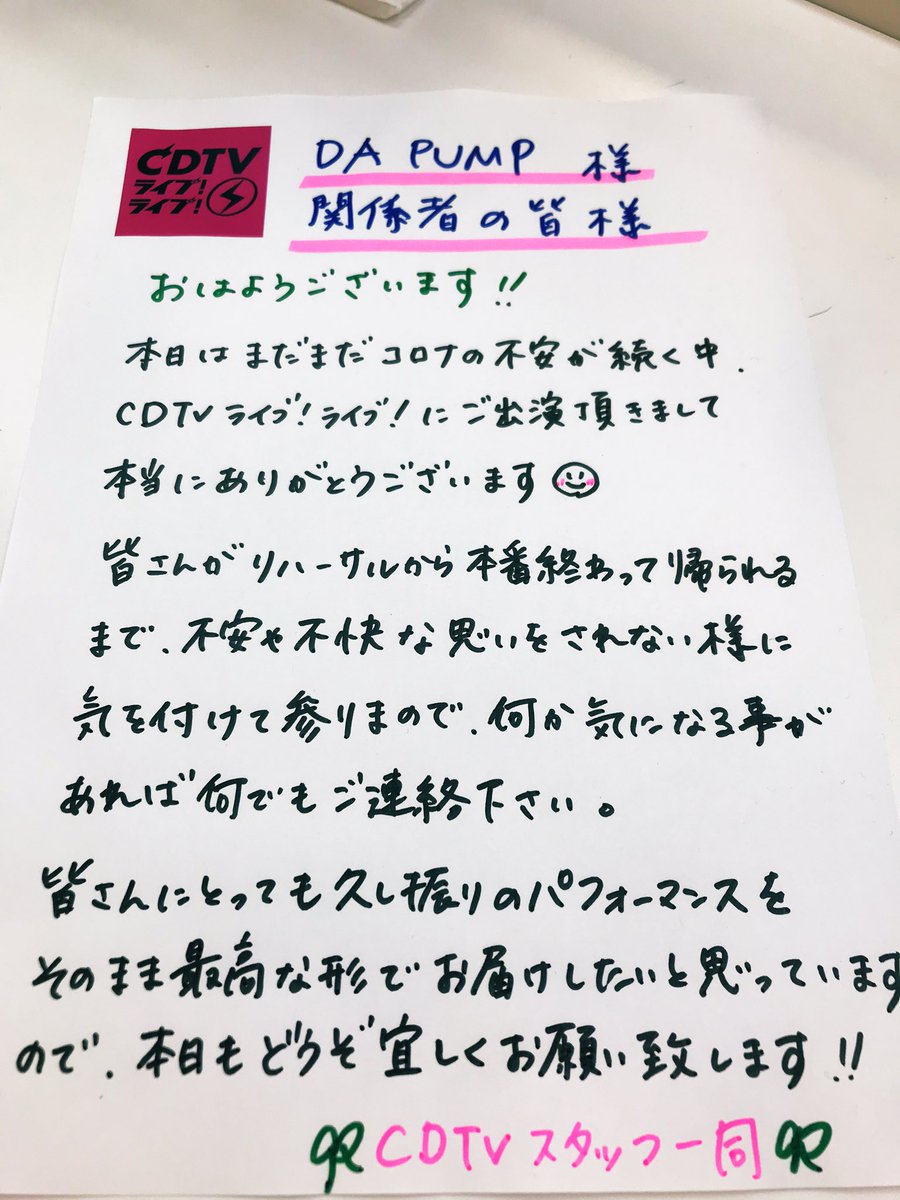 CDTV
ライブ!
ライブ!
DA PUMP 様
関係者の皆様
おはようございます!!
本日はまだまだコロナの不安が続く中、
CDTVライブ!ライブ!にご出演頂きまして
本当にありがとうございます
皆さんがリハーサルから本番終わって帰られる
まで、不安や不快な思いをされない様に
気を付けて参りまので、何か気になる事が
あれば何でもご連絡下さい。
皆さんにとっても久し振りのパフォーマンスを
そのまま最高な形でお届けしたいと思っています
ので、本日もどうぞ宜しくお願い致します!!
CDTVスタッフ一同